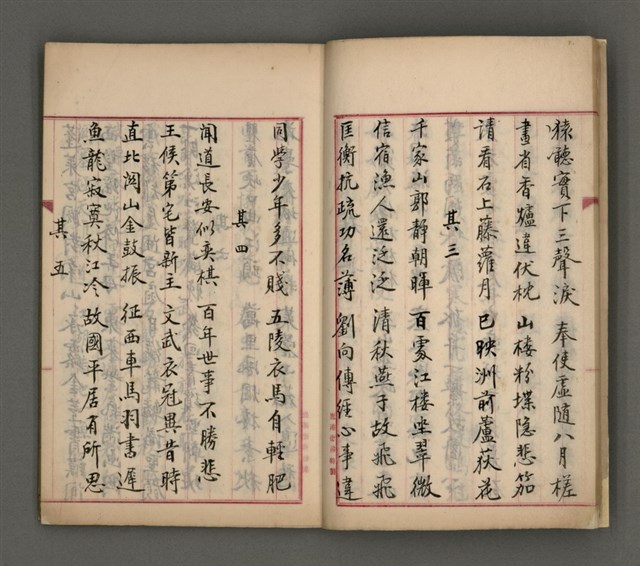 猿聽實下三聲淚 奉使虛隨八月槎
畫省香爐違伏枕 山樓粉堞隱悲笳
請看石上藤蘿月 已映洲前蘆荻花
其三
千家山郭靜朝暉 百處江樓坐翠微
信宿漁人還泛泛 清秋燕子故飛飛
匡衡抗疏功名薄 劉向傳經心事違
同學少年多不賤 五陵衣馬自輕肥
其四
聞道長安似奕棋 百年世事不勝悲
王侯第宅皆新主 文武衣冠異昔時
直北関山金鼓振 征西車馬羽書遲
魚龍寂寞秋江冷 故國平居有所思
其五